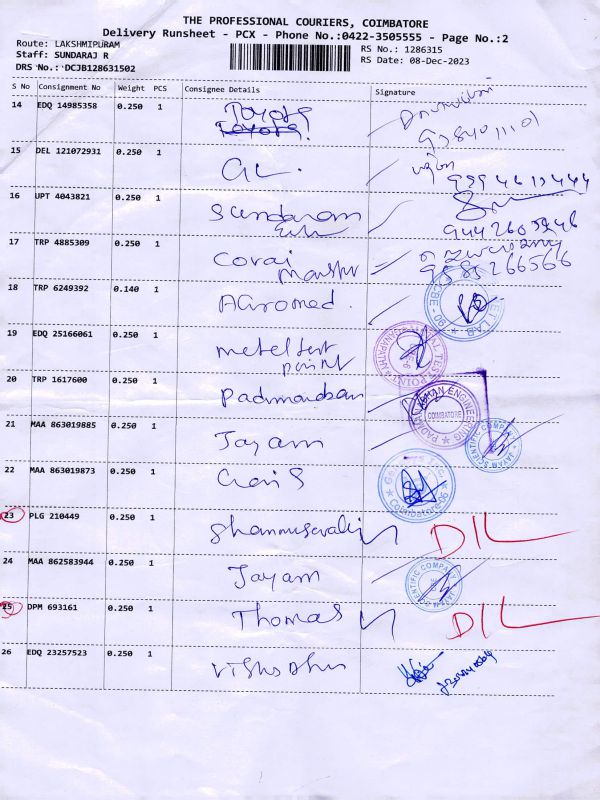 THE PROFESSIONAL COURIERS, COIMBATORE
Delivery Runsheet - PCX - Phone No.:0422-3505555 - Page No.:2
Route: LAKSHMIPURAM
Staff: SUNDARAJ R
DRS No.: DCJB128631502
RS No.: 1286315
RS Date: 08-Dec-2023
S No Consignment No Weight PCS Consignee Details Signature
14 EDQ 14985358 0.250 1 Toyota
Toyota
15 DEL 121072931 0.250 1 GL.
16 UPT 4043821 0.250 1 Sundaram
9442603946
17 TRP 4885309 0.250 1 Covai
9585266566
18 TRP 6249392 0.140 1 Agromed.
19 EDQ 25166061 0.250 1 metel test
point
TEST POINT
20 TRP 1617600 0.250 1 Padmanaban
ENGINEERING
COIMBATORE
21 MAA 863019885 0.250 1 Jayam
JAYAM SCIENTIFIC COMPANY
22 MAA 863019873 0.250 1
Coimbatore
23 PLG 210449 0.250 1 DIL
24 MAA 862583944 0.250 1 Jayam
JAYAM SCIENTIFIC COMPANY
25 DPM 693161 0.250 1 Thomas DIL
26 EDQ 23257523 0.250 1